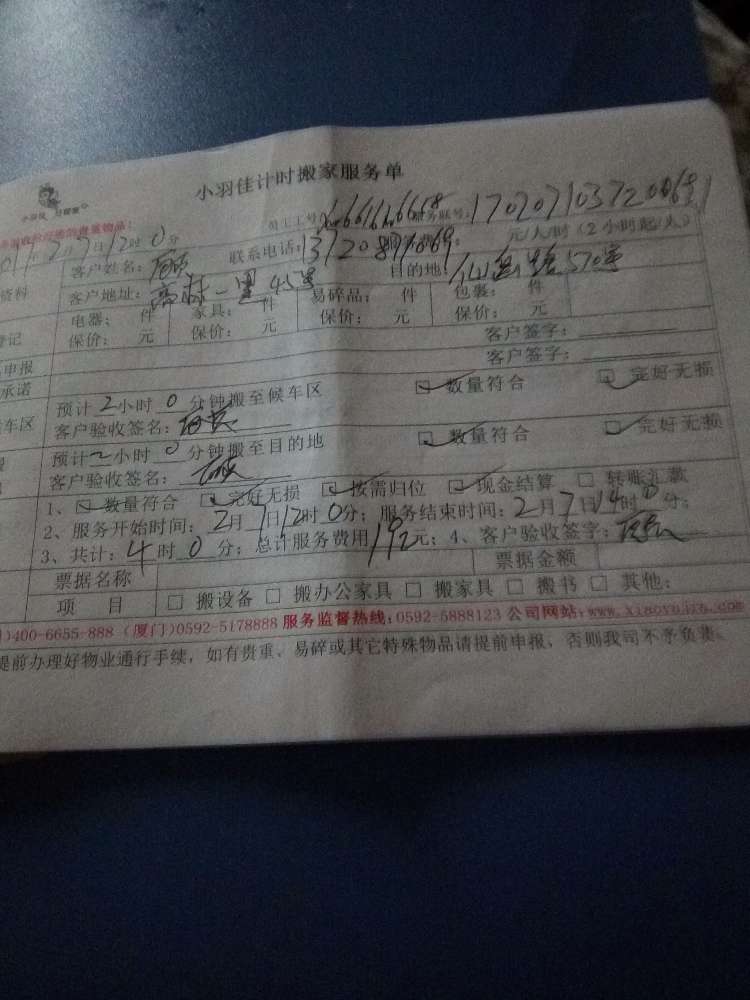 小羽佳计时搬家服务单
小羽佳
员工工号: 服务账号:
2月7日12时0分 联系电话: 元/人/时(2小时起/人)
资料 客户姓名: 目的地:
客户地址: 一里45号 570号
登记 电器: 件 家具: 件 易碎品: 件 包裹: 件
保价: 元 保价: 元 保价: 元 保价: 元
申报 客户签字:
承诺 客户签字:
车区 预计2小时0分钟搬至候车区 ☑数量符合 ☑完好无损
客户验收签名:
预计2小时0分钟搬至目的地 ☑数量符合 ☑完好无损
客户验收签名:
1、☑数量符合 ☑完好无损 ☑按需归位 ☑现金结算 □转账汇款
2、服务开始时间:2月7日12时0分;服务结束时间:2月7日14时0分;
3、共计:4时0分;总计服务费用192元;4、客户验收签字:
票据名称 票据金额
项 目 □搬设备 □搬办公家具 □搬家具 □搬书 □其他:
)400-6655-888 (厦门)0592-5178888 服务监督热线:0592-5888123 公司网站:www.xiaoyujia.com
提前办理好物业通行手续,如有贵重、易碎或其它特殊物品请提前申报,否则我司不予负责。